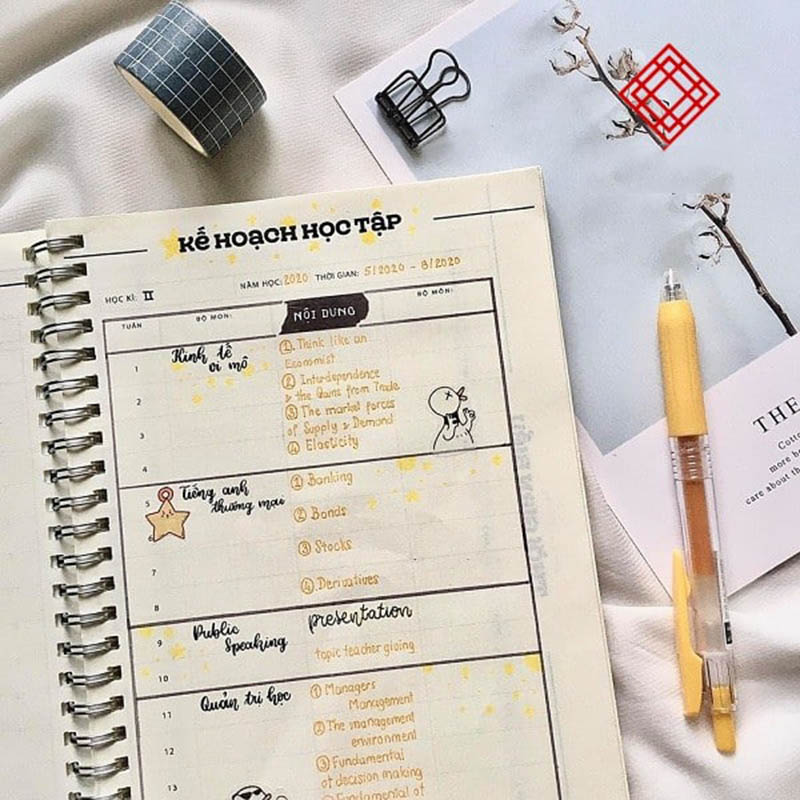 KẾ HOẠCH HỌC TẬP
NĂM HỌC: 2020 THỜI GIAN: 5/2020 - 8/2020
HỌC KÌ: II
TUẦN BỘ MÔN: NỘI DUNG BỘ MÔN:
1
2
3
4
Kinh tế
vi mô
①. Think like an
Economist
② Interdependence
& the Gains from Trade
③ The market forces
of Supply & Demand
④ Elasticity
5
6
7
8
Tiếng anh
thương mại
① Banking
② Bonds
③ Stocks
④. Derivatives
9
10
Public
Speaking
presentation
topic teacher giving
11
12
13
Quản trị học
① Managers
Management
② The management
environment
③ Fundamental
of decision making
Fundamental of
THE
Cotto
more b
care about th